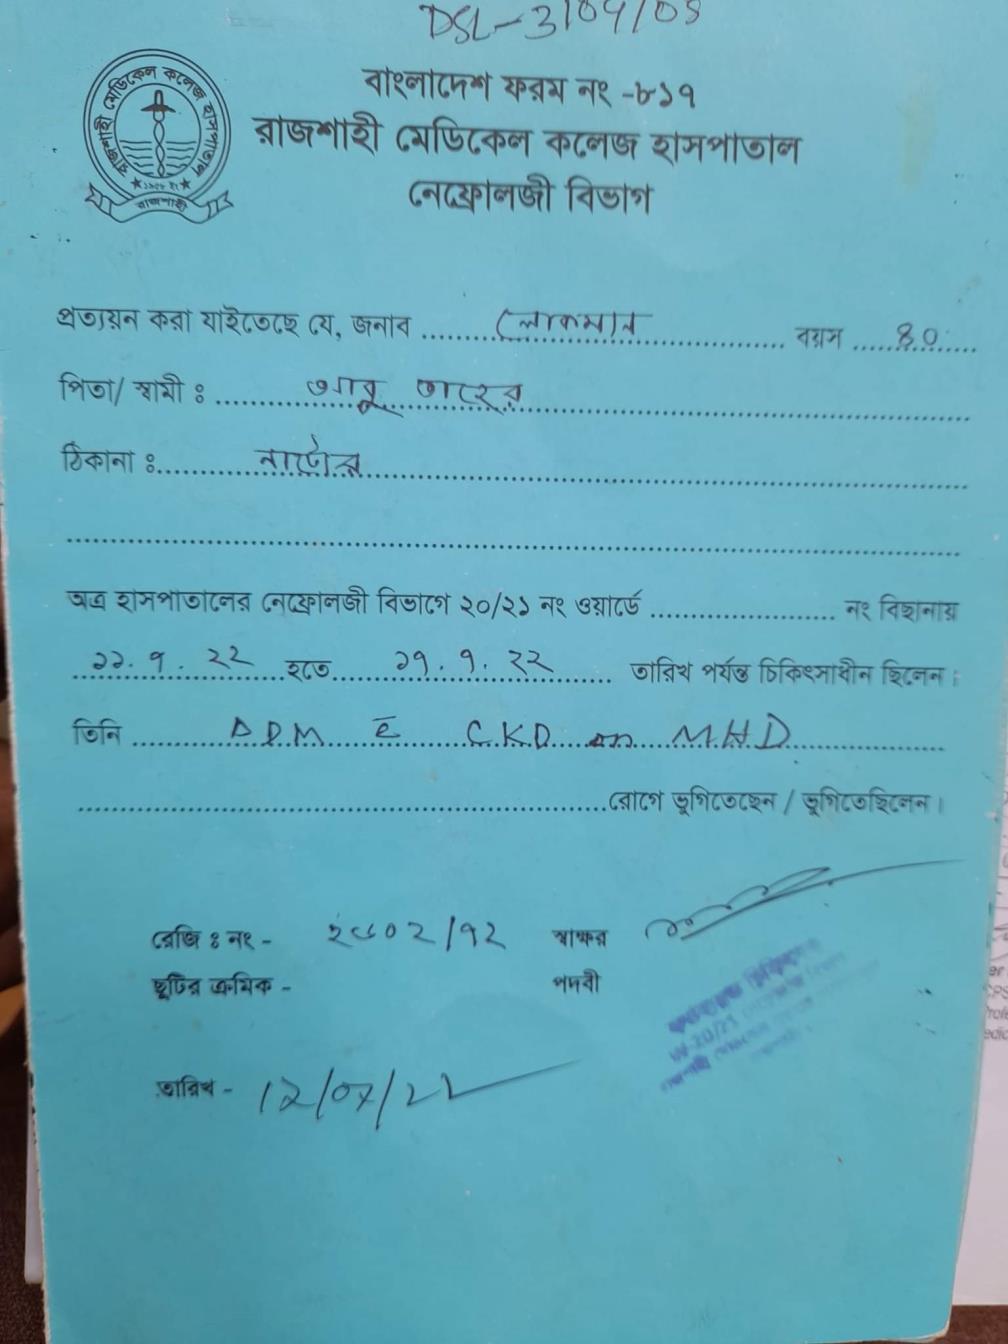 DSL-3104/03
বাংলাদেশ ফরম নং -৮১৭
রাজশাহী মেডিকেল কলেজ হাসপাতাল
নেফ্রোলজী বিভাগ
রাজশাহী মেডিকেল কলেজ হাসপাতাল
★ ১৯৫৮ ইং ★
রাজশাহী
প্রত্যয়ন করা যাইতেছে যে, জনাব ..........লোকমান.................... বয়স ....৪০....
পিতা/ স্বামী ঃ ..........আবু তাহের..............................
ঠিকানা ঃ..........নাটোর..............................
অত্র হাসপাতালের নেফ্রোলজী বিভাগে ২০/২১ নং ওয়ার্ডে .................... নং বিছানায়
১১.৭.২২ হতে ১৭.৭.২২ তারিখ পর্যন্ত চিকিৎসাধীন ছিলেন।
তিনি .......... DM c̄ CKD on MHD..........
..............................রোগে ভুগিতেছেন / ভুগিতেছিলেন।
রেজি ঃ নং - /৭২ স্বাক্ষর
ছুটির ক্রমিক - পদবী
তারিখ - 12/07/22